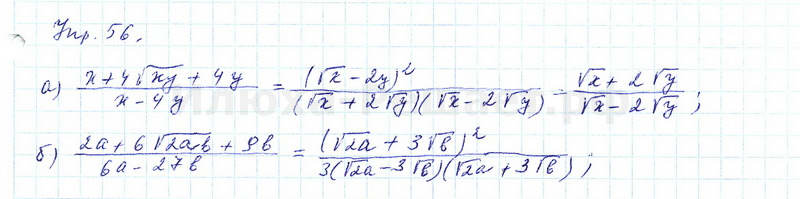 Упр. 56.
а) (x + 4√xy + 4y)/(x - 4y) = (√x - 2y)²/((√x + 2√y)(√x - 2√y)) = (√x + 2√y)/(√x - 2√y);
б) (2a + 6√2ab + 9b)/(6a - 27b) = (√2a + 3√b)²/(3(√2a - 3√b)(√2a + 3√b));